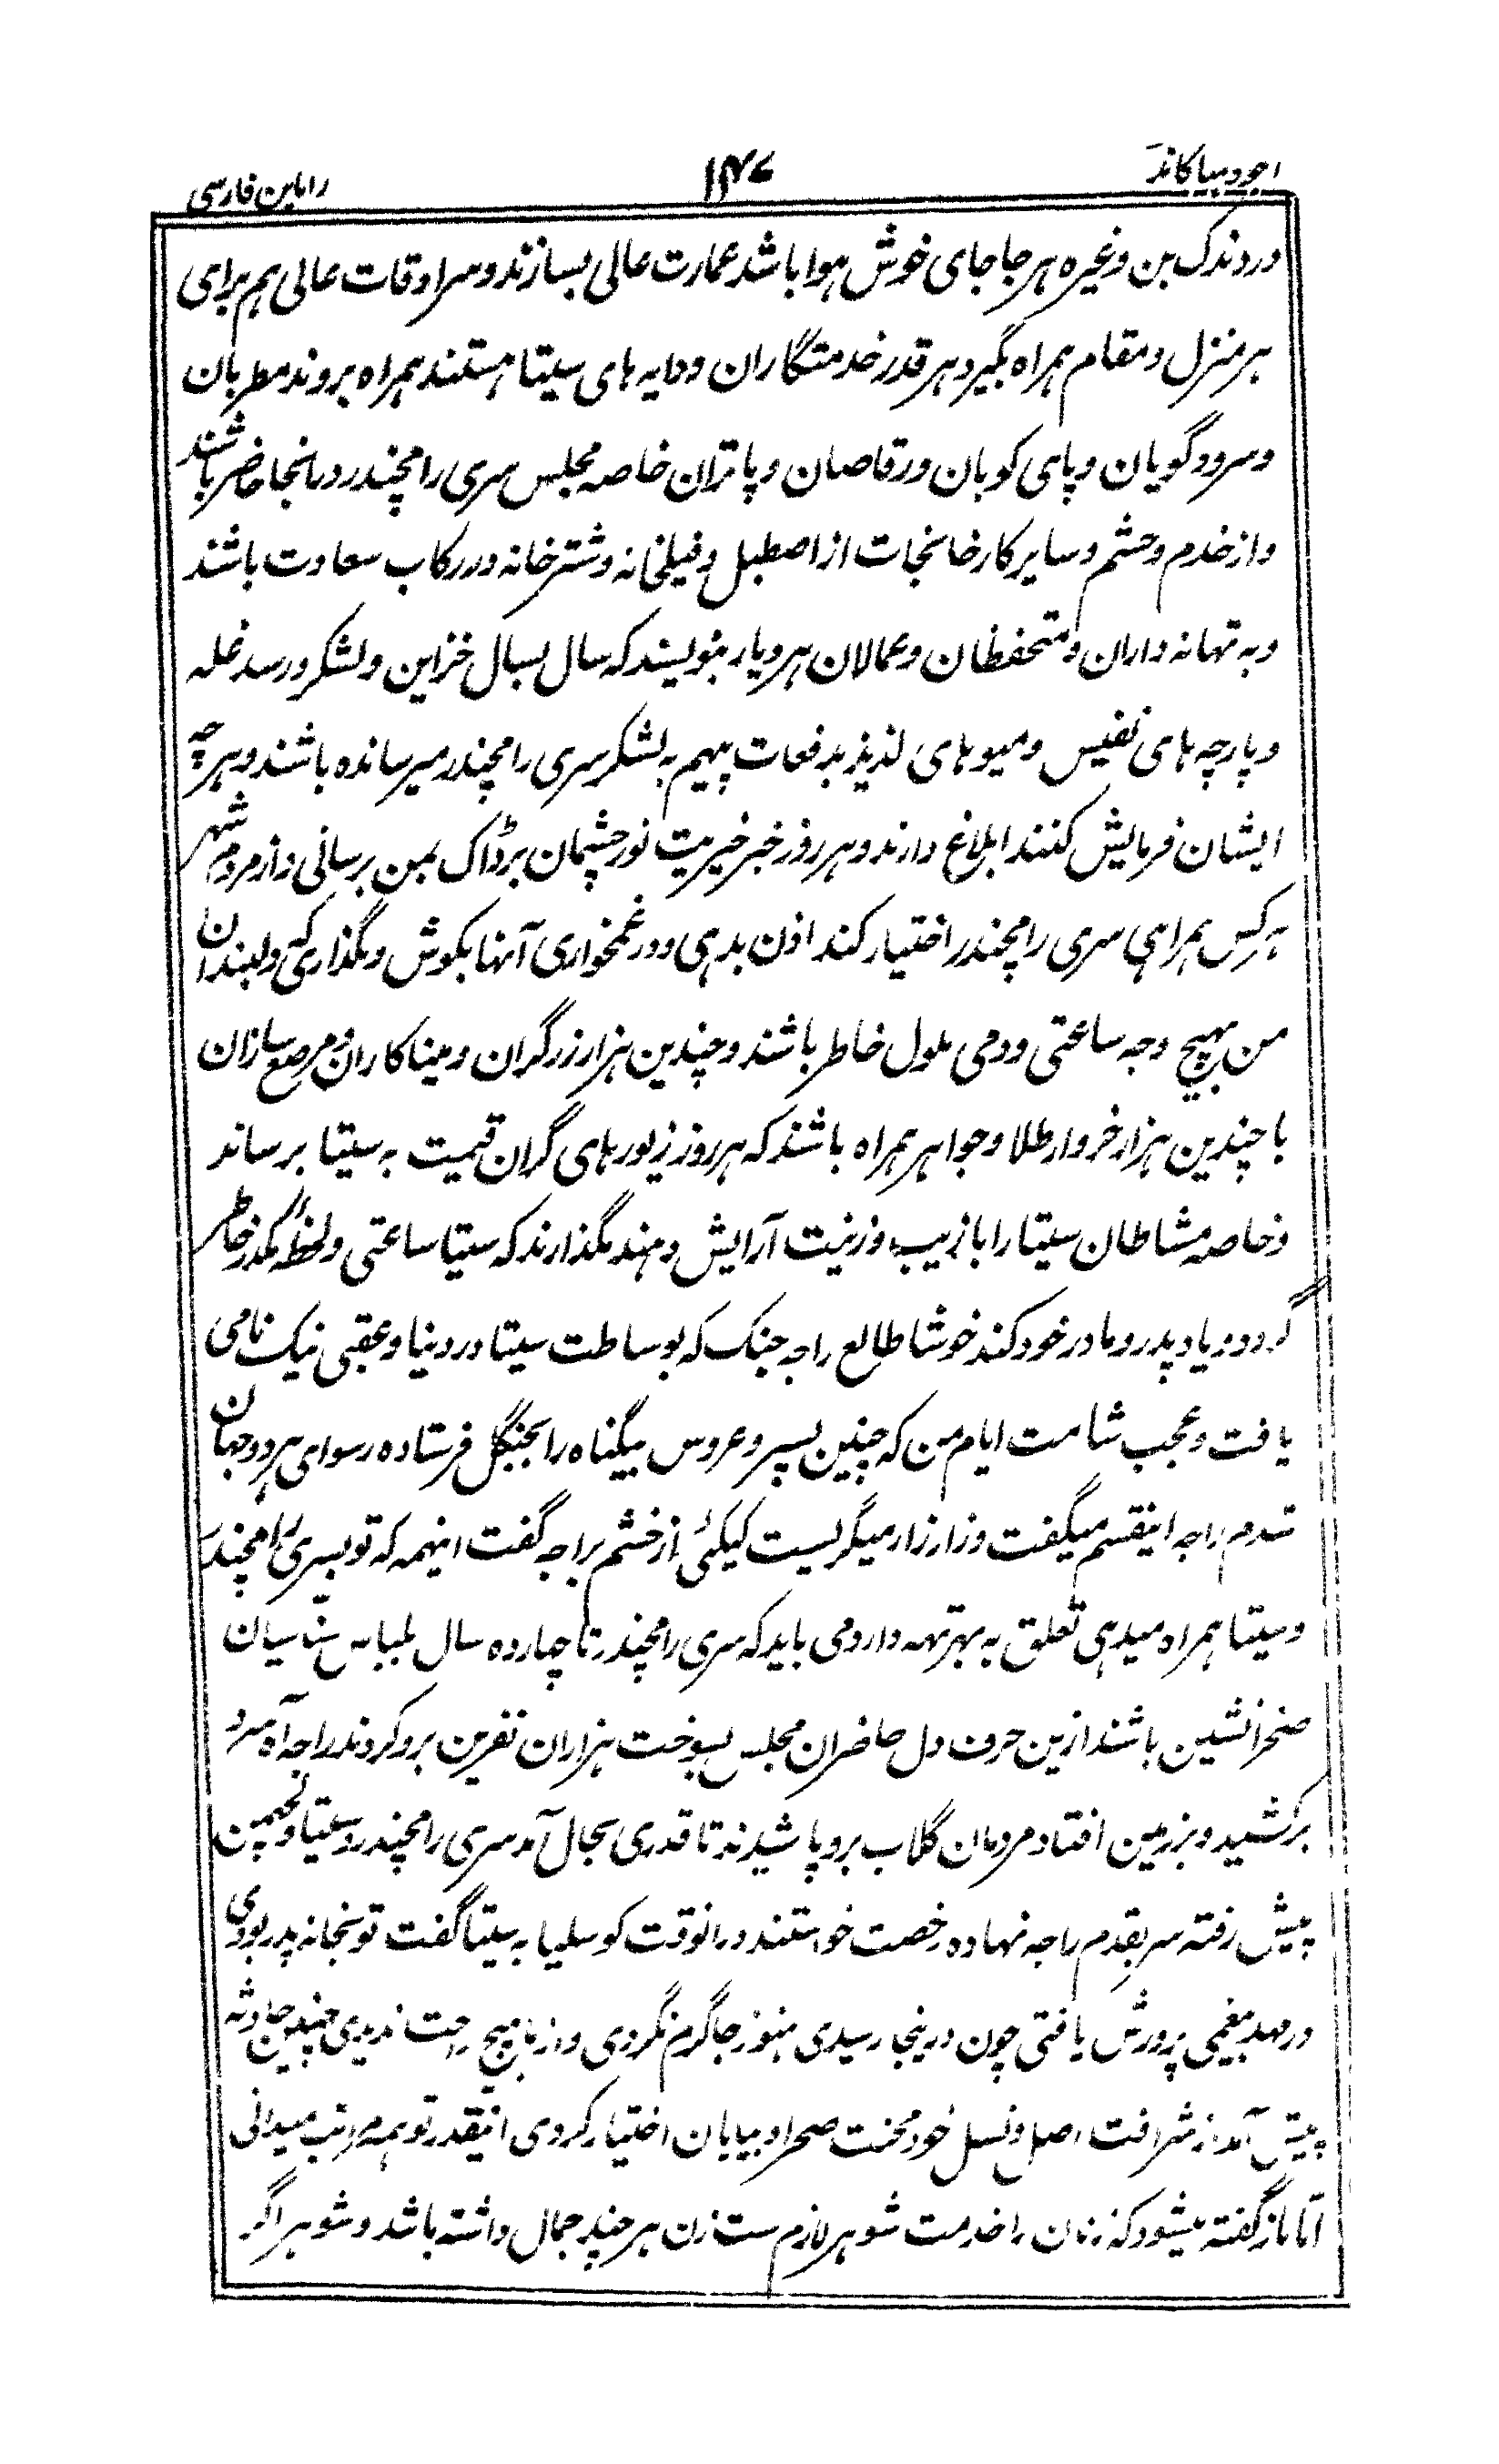 اجودھیا کانڈ ۱۴۷ راماین فارسی
در دندک بن وغیره هر جا جای خوش هوا باشد عمارت عالی بسازند و سرادقات عالی هم برای
هر منزل و مقام همراه بگیرد هر قدر خدمتگاران و دایه های سیتا هستند همراه بروند مطربان
و سرود گویان و پای کوبان و رقاصان و پاتران خاصه مجلس سری رامچندر در انجا حاضر باشند
و از خدم و حشم و سایر کارخانجات از اصطبل و فیلخانه و شتر خانه در رکاب سعادت باشند
و به تهانه داران و متحفظان و عمالان هر دیار بنویسند که سال بسال خزاین و لشکر و رسد غله
و پارچه های نفیس و میوهای لذیذ بدفعات پیهم به لشکر سری رامچندر میرسانده باشند و هر چه
ایشان فرمایش کنند ابلاغ دارند و هر روز خبر خیریت نور چشمان بر ڈاک بمن برسانی و از مردم شهر
هر کس همراهی سری رامچندر اختیار کند اذن بدهی و در غمخواری آنها بکوش و نگذاری که دلبندان
من بهیچ وجه ساعتی و دمی ملول خاطر باشند و چندین هزار زرگران و میناکاران و مرصع سازان
با چندین هزار خروار طلا و جواهر همراه باشند که هر روز زیورهای گران قیمت به سیتا برساند
و خاصه مشاطان سیتا را با زیب و زینت آرایش دهند نگذارند که سیتا ساعتی و لحظهٔ مکدر خاطر
گردد و یاد پدر و مادر خود کند خوشا طالع راجه جنک که بوساطت سیتا در دنیا و عقبی نیک نامی
یافت و عجب شامت ایام من که چنین پسر و عروس بیگناه را بجنگل فرستاده رسوای هر دو جهان
شدم راجه اینقسم میگفت و زار زار میگریست کیکئی از خشم براجه گفت اینهمه که تو بسری رامچندر
و سیتا همراه میدهی تعلق به بهرتهه دارد می باید که سری رامچندر تا چهارده سال بلباس سناسیان
صحرا نشین باشند ازین حرف دل حاضران مجلس بسوخت هزاران نفرین برو کردند راجه آه سرد
بر کشید و بر زمین افتاد مردمان گلاب برو پاشیدند تا قدری بحال آمد سری رامچندر و سیتا و لچهمن
پیش رفته سر بقدم راجه نهاده رخصت خواستند درانوقت کوسلیا به سیتا گفت تو بخانه پدر بودی
در مهد بیغمی پرورش یافتی چون درینجا رسیدی هنوز جا گرم نکردی و از ما هیچ راحت ندیدی چنین حادثه
پیش آمد از شرافت اصل و نسل خود محنت صحرا و بیابان اختیار کردی اینقدر تو همه مراتب میدانی
اما باز گفته میشود که زنان را خدمت شوهر لازم ست زن هر چند جمال داشته باشد و شوهر اگر